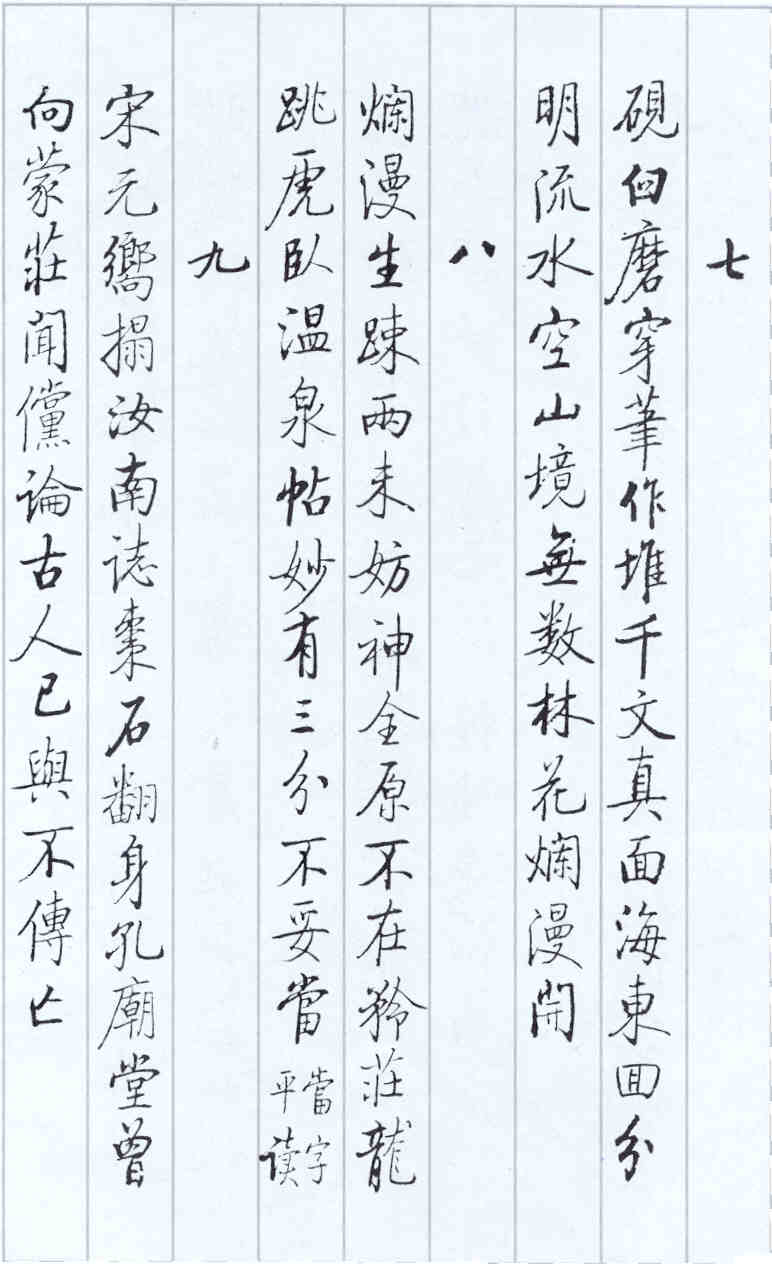 七
硯臼磨穿筆作堆千文真面海東回分
明流水空山境無數林花爛漫開
八
爛漫生疎兩未妨神全原不在矜莊龍
跳虎臥温泉帖妙有三分不妥當當字平读
九
宋元嚮搨汝南誌棗石翻身孔廟堂曾
向蒙莊聞儻論古人已與不傳亡